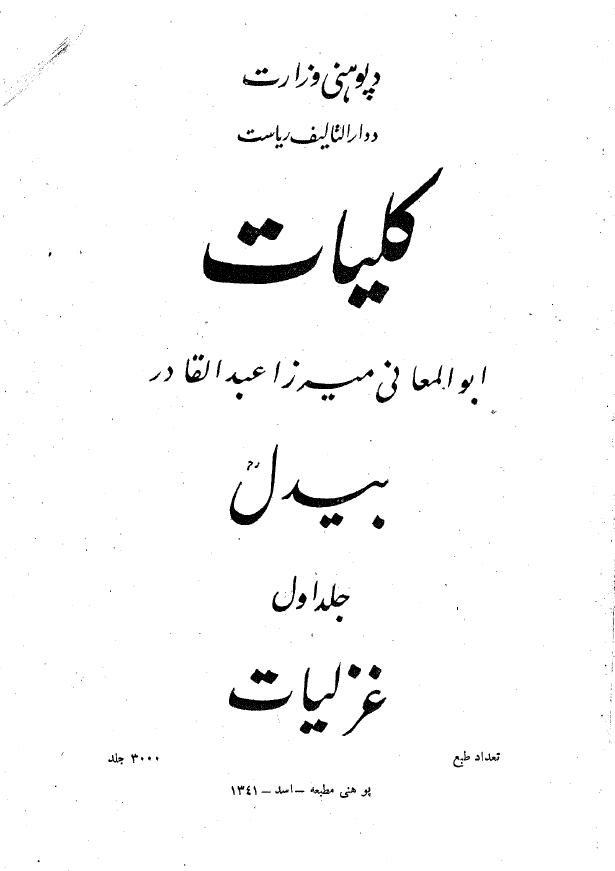 د پوهنی وزارت
د دارالتالیف ریاست
کلیات
ابوالمعانی میرزا عبدالقادر
بیدل رح
جلد اول
غزلیات
تعداد طبع ۳۰۰۰ جلد
پوهنی مطبعه – اسد – ۱۳٤۱